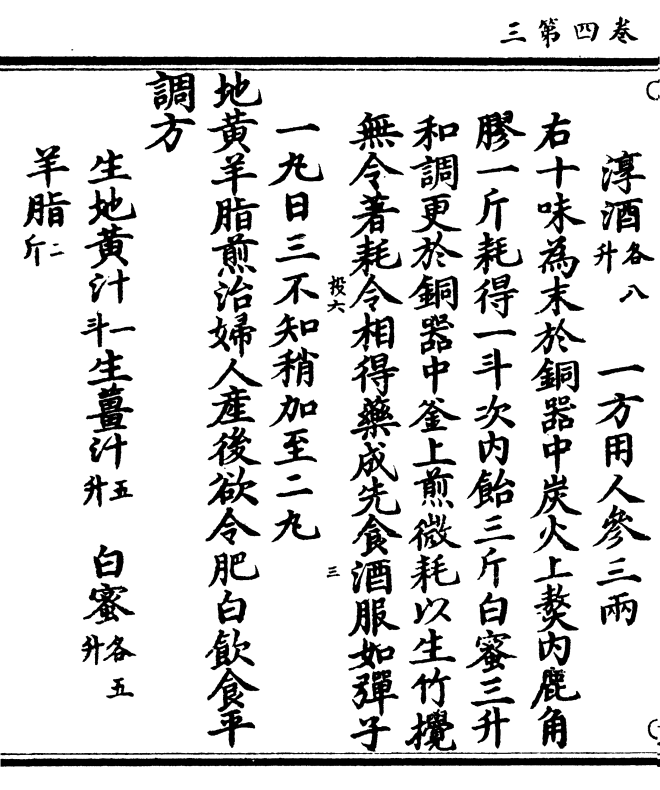 卷四第三
淳酒各八升 一方用人參三兩
右十味為末於銅器中炭火上熬內鹿角
膠一斤耗得一斗次內飴三斤白蜜三升
和調更於銅器中釜上煎微耗以生竹攪
無令著耗令相得藥成先食酒服如彈子
投六 三
一丸日三不知稍加至二丸
地黃羊脂煎治婦人產後欲令肥白飲食平
調方
生地黃汁一斗生薑汁五升 白蜜各五升
羊脂二斤